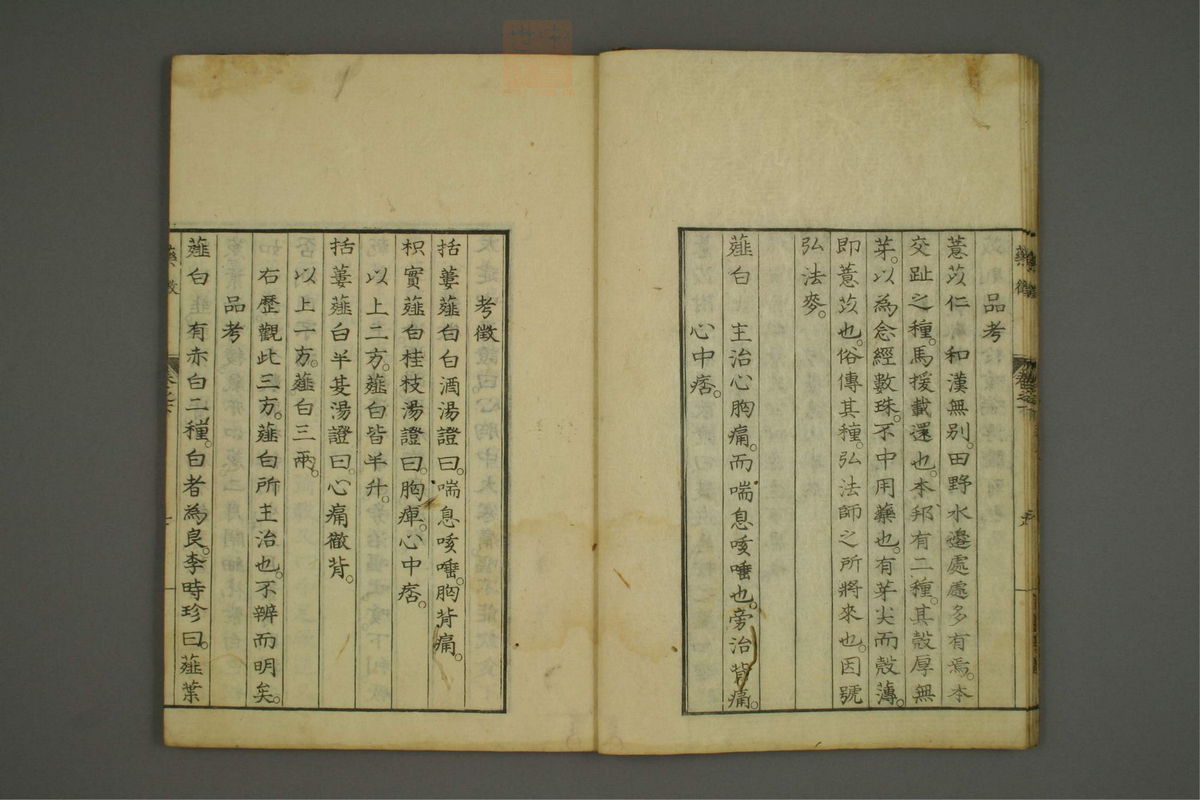 品考
薏苡仁 和漢無別。田野水邊處處多有焉。本
交趾之種。馬援載還也。本邦有二種。其殼厚無
芽。以為念經數珠。不中用藥也。有芽尖而殼薄。
即薏苡也。俗傳其種。弘法師之所將來也。因號
弘法麥。
薤白 主治心胸痛。而喘息咳唾也。旁治背痛。
心中痞。
考徵
括蔞薤白白酒湯證曰。喘息咳唾。胸背痛。
枳實薤白桂枝湯證曰。胸痺。心中痞。
以上二方。薤白皆半升。
括蔞薤白半夏湯證曰。心痛徹背。
以上一方。薤白三兩。
右歷觀此三方。薤白所主治也。不辨而明矣。
品考
薤白 有赤白二種。白者為良。李時珍曰。薤葉
藥徵